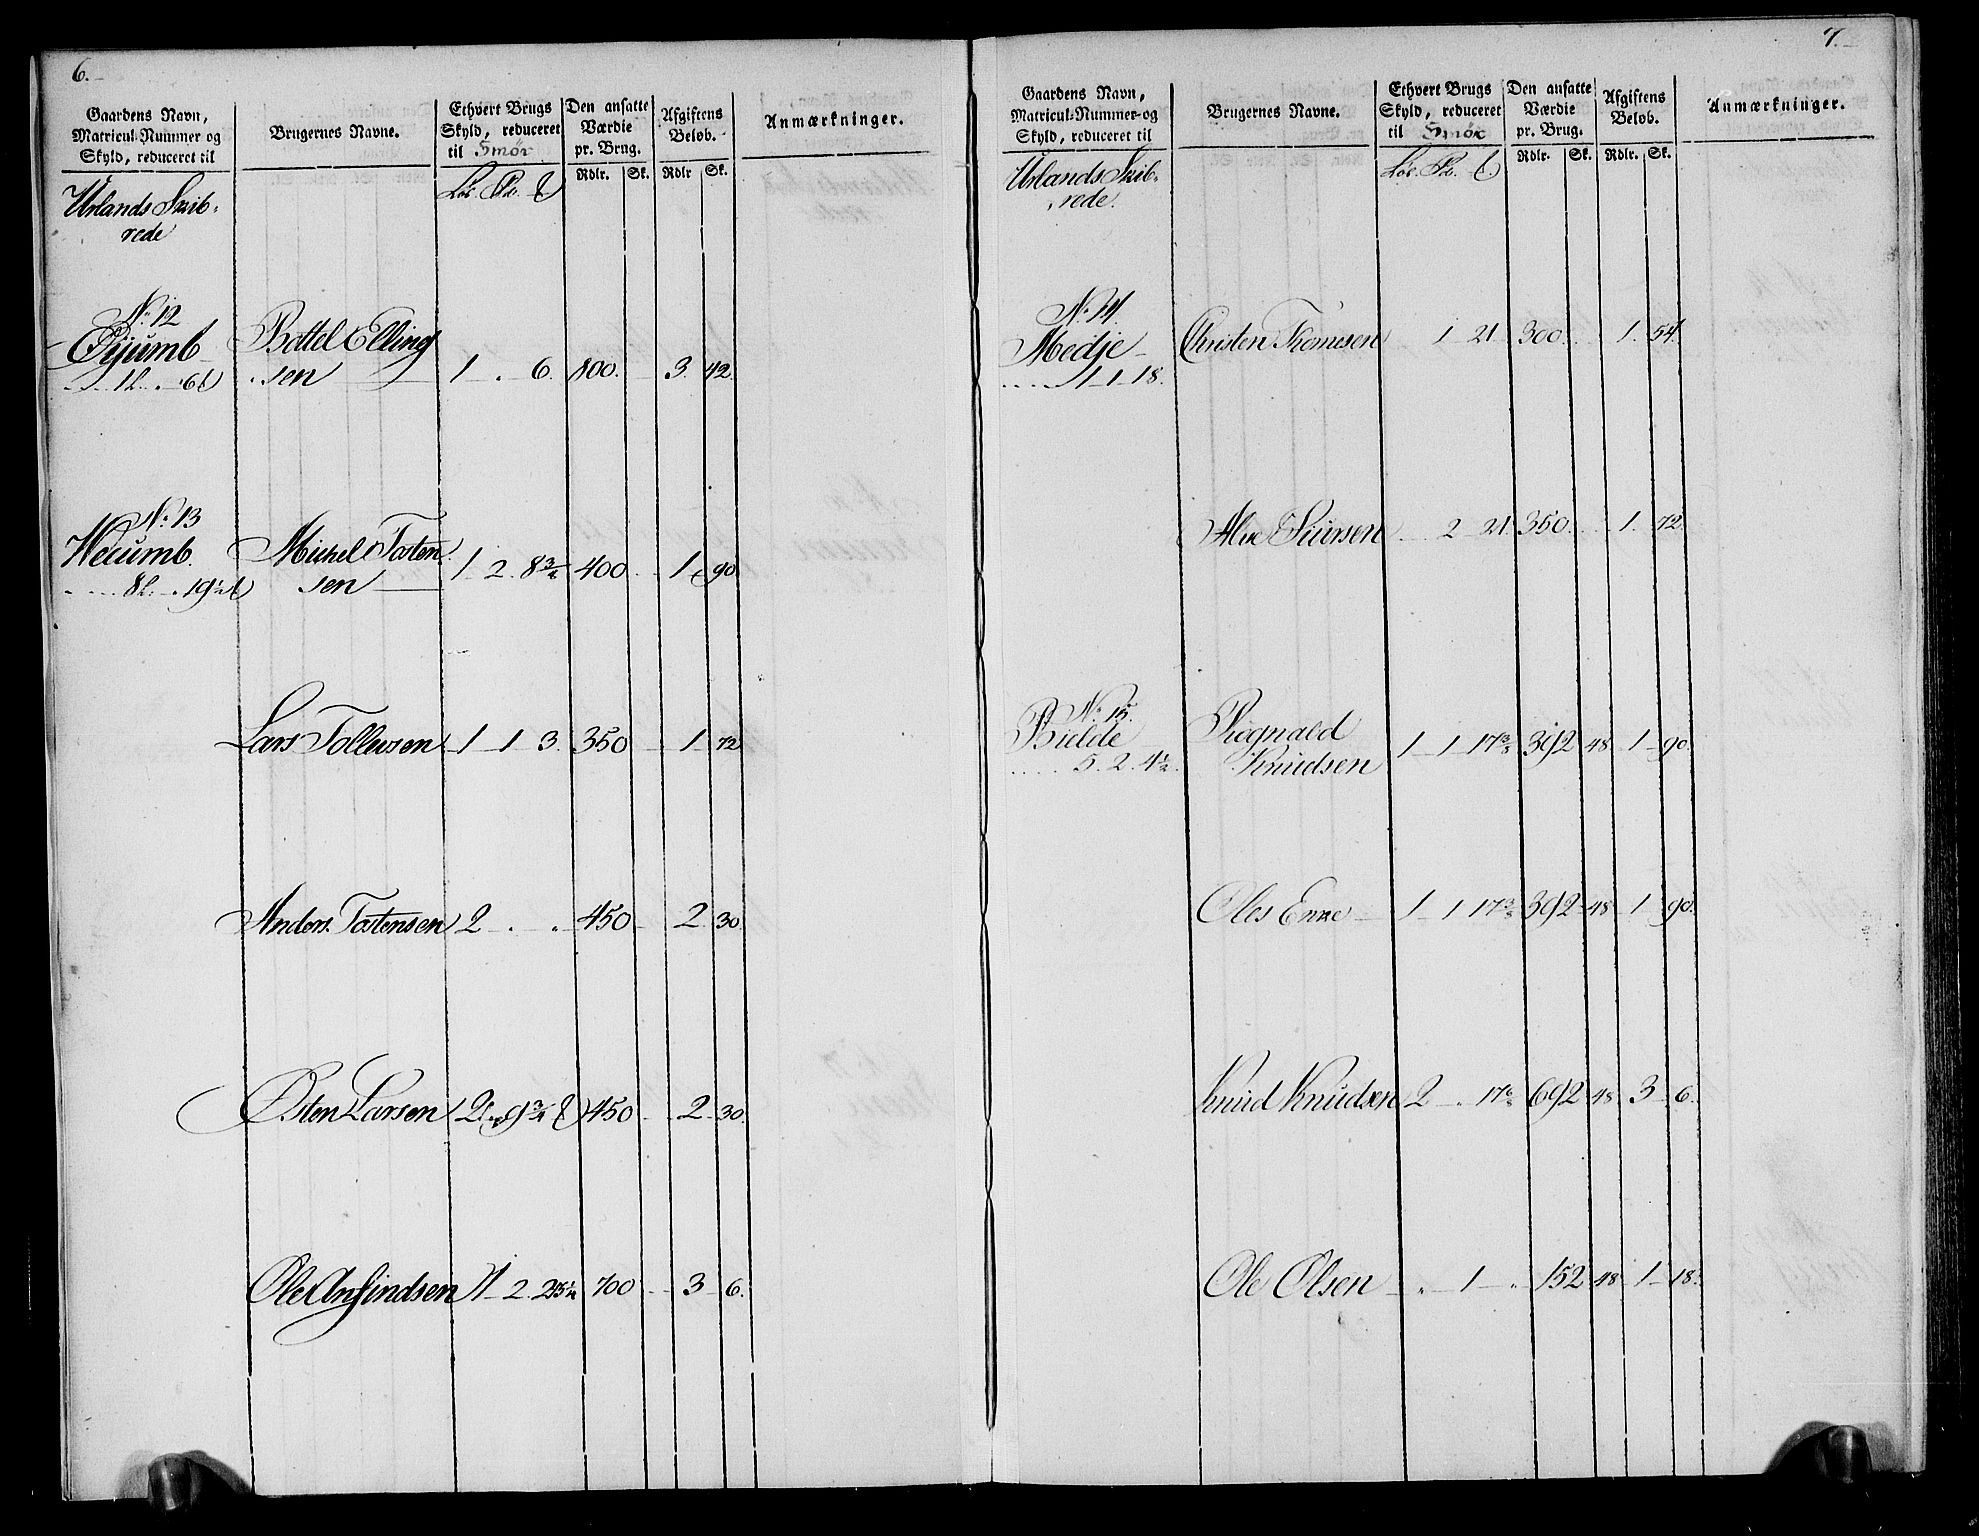 6.
Gaardens Navn,
Matricul-Nummer og
Skyld, reduceret til
Brugernes Navne.
Ethvert Brugs
Skyld, reduceret
til Smør
Den ansatte
Værdie
pr. Brug.
Afgiftens
Beløb.
Anmærkninger.
Rdlr. Sk. Rdlr Sk.
Urlands Skib-
rede
No. 12
1 . 6
Bottel Elling
sen 1 . 6. 800. 3. 42.
No. 13
8 . 19½
Michel Tosten
sen 1 2 8¾ 400 1 90
Lars Tollevsen 1 1 3 350 1 72
Anders Tostensen 2 . . 450 2 30
Østen Larsen 2 . 9¾ 450 2 30.
Ole Anfindsen 700 3 6.
7.
Gaardens Navn,
Matricul-Nummer og
Skyld, reduceret til
Brugernes Navne.
Ethvert Brugs
Skyld, reduceret
til Smør
Den ansatte
Værdie
pr. Brug.
Afgiftens
Beløb.
Anmærkninger.
Rdlr. Sk. Rdlr. Sk.
Urlands Skib-
rede.
No. 14
Medje
1 1 18.
Christen Thomesen 1 21 300. 1. 54.
Siursen 2 21 350. 1. 72.
No. 15.
Bielde
5. 2. 4½
Rognald
Knudsen 1 1 17⅜ 392 48 1 90.
Oles Enke 1 1 17⅜ 392 48 1 90.
Knud Knudsen 2 . 17⅜ 692 48 3 6.
Ole Olsen " 1 " 152 48 1 18.